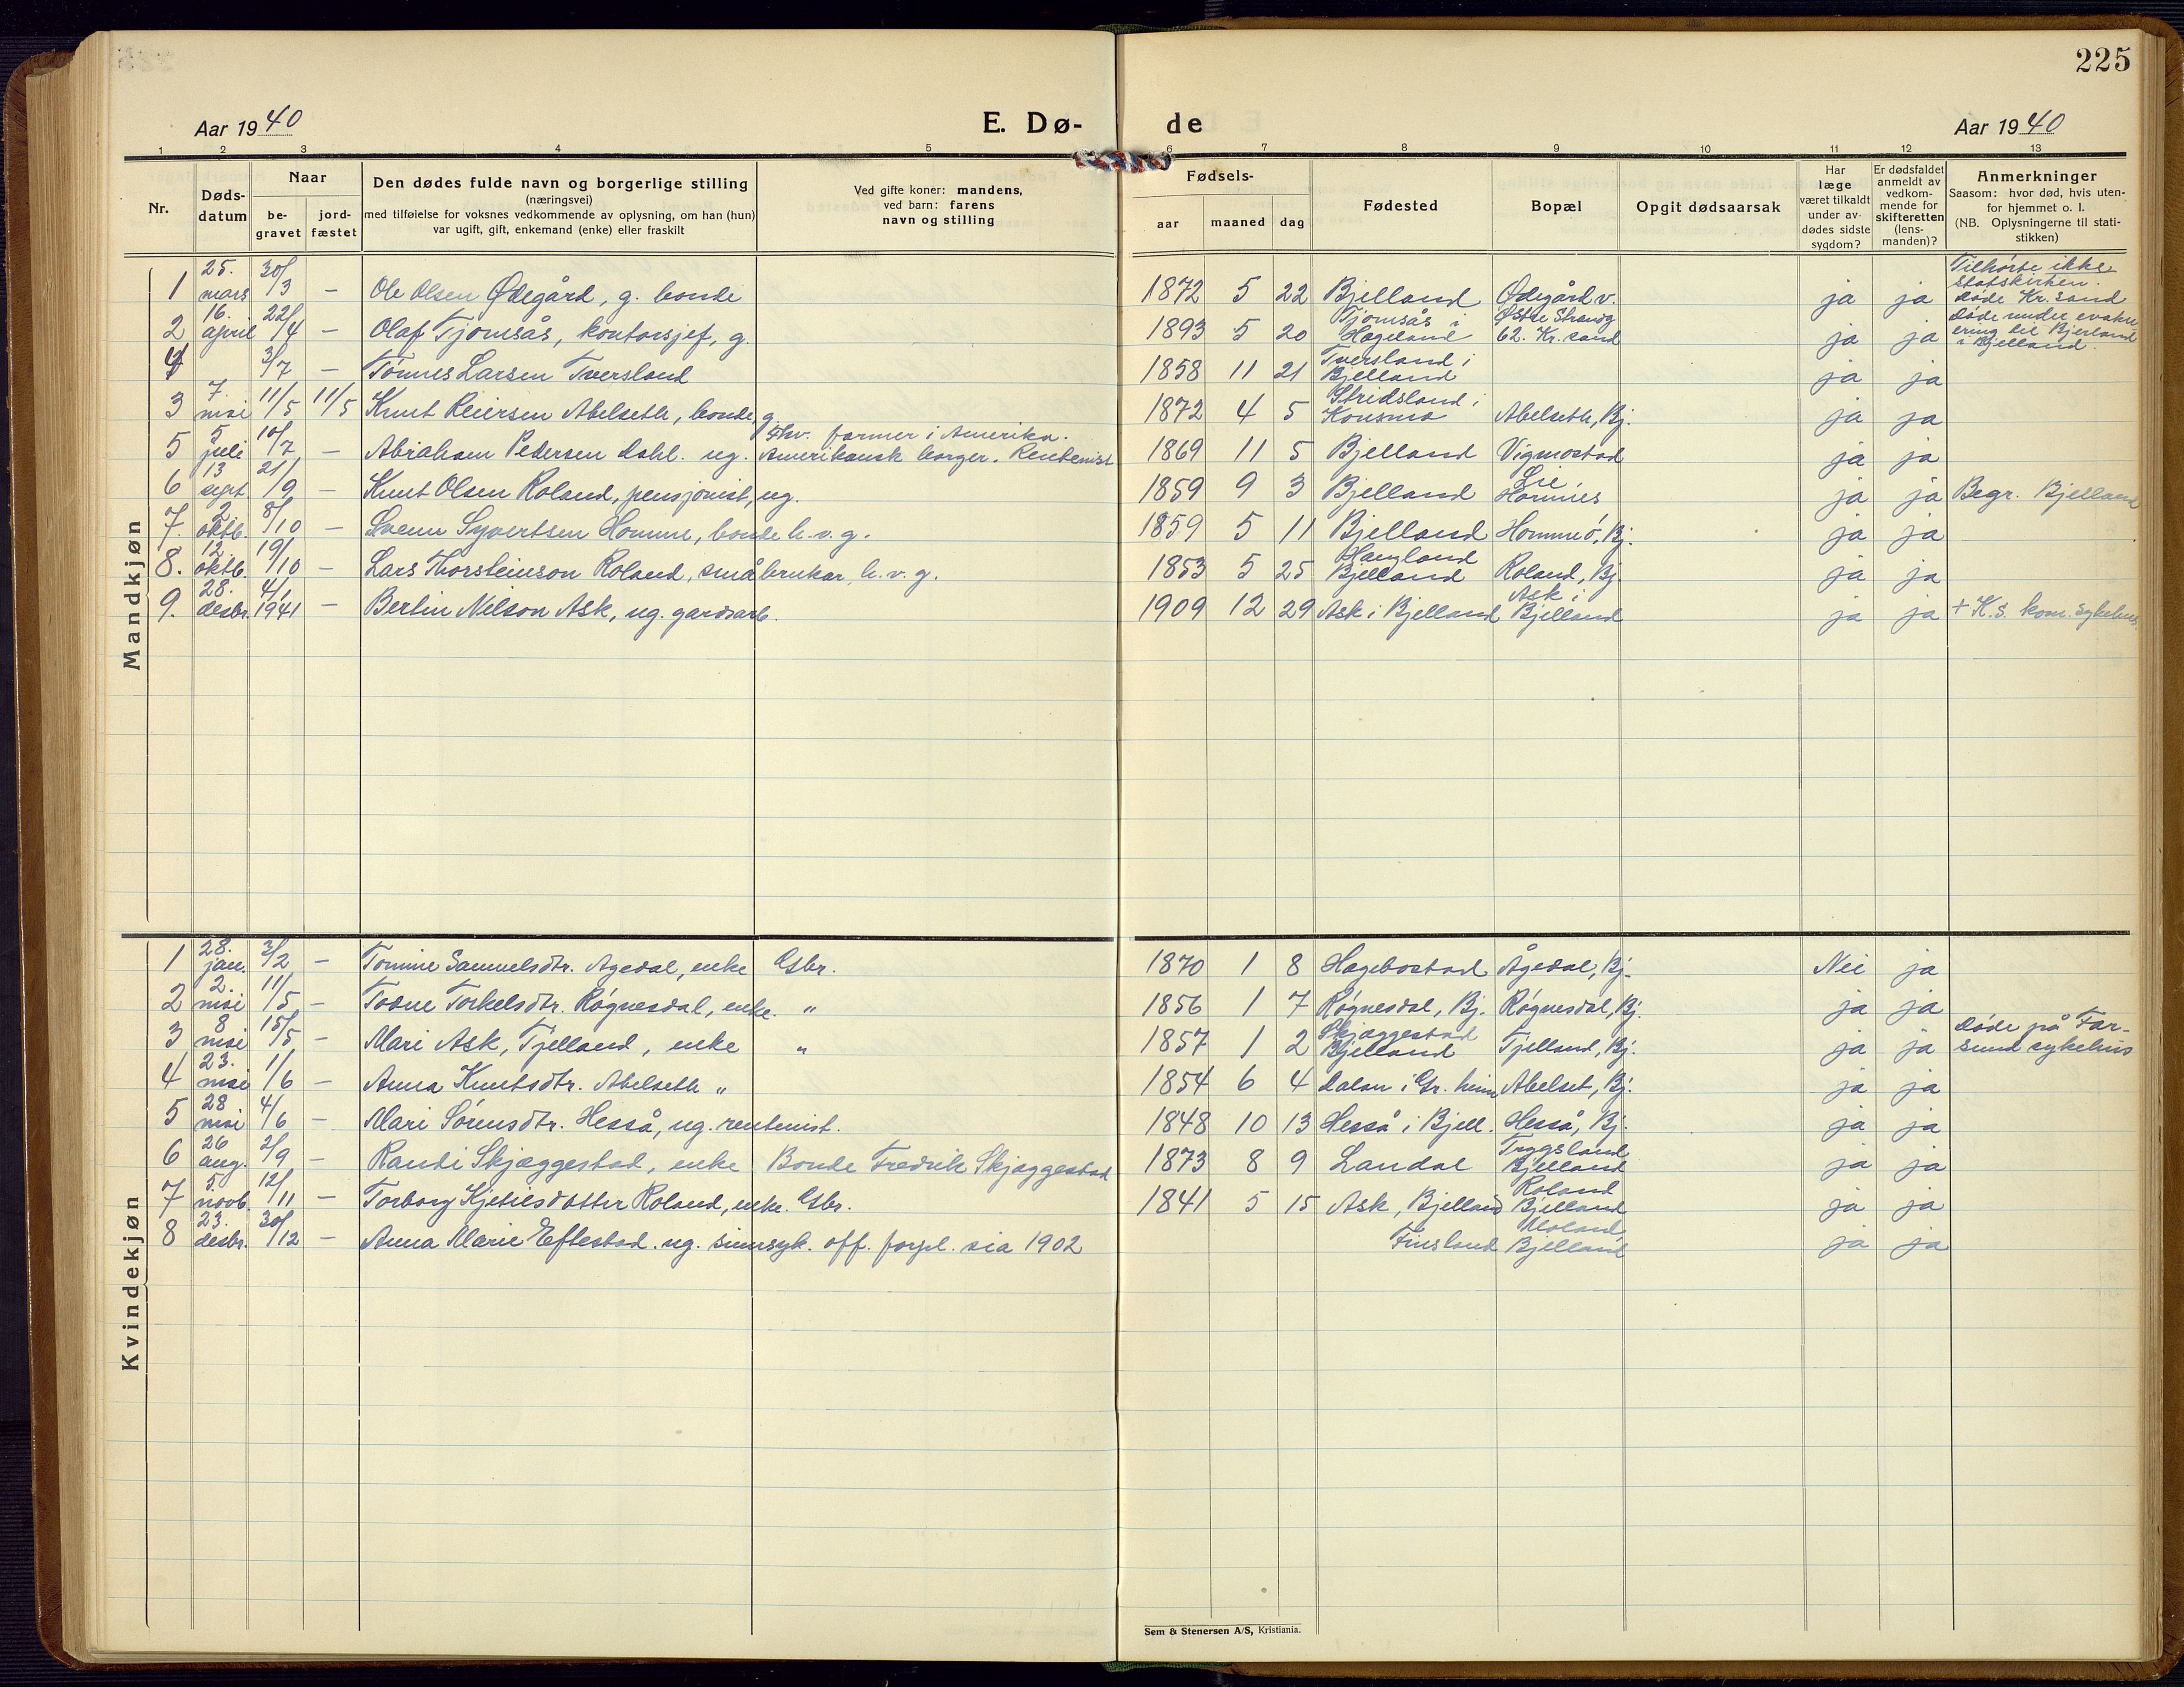 225
Aar 1940 E. Dø- de Aar 1940
1 2 3 4 5 6 7 8 9 10 11 12 13
Nr.
Døds-
datum
Naar
be-
gravet
jord-
fæstet
Den dødes fulde navn og borgerlige stilling
(næringsvei)
med tilføielse for voksnes vedkommende av oplysning, om han (hun)
var ugift, gift, enkemand (enke) eller fraskilt
Ved gifte koner: mandens,
ved barn: farens
navn og stilling
Fødsels-
aar maaned dag
Fødested
Bopæl
Opgit dødsaarsak
Har
læge
været tilkaldt
under av-
dødes sidste
sygdom?
Er dødsfaldet
anmeldt av
vedkom-
mende for
skifteretten
(lens-
manden)?
Anmerkninger
Saasom: hvor død, hvis uten-
for hjemmet o. l.
(NB. Oplysningerne til stati-
stikken)
Mandkjøn
1 25. mars 30/3 – Ole Olsen Ødegård, g. bonde 1872 5 22 Bjelland Ødegård v. ja ja Tilhørte ikke statskirken. Døde Kr.sand
2 16. april 22/4 – Olaf Tjomsås, kontorsjef, g. 1893 5 20 Tjomsås i Hægeland Østre Strandg 62. Kr.sand ja ja Døde under evakuering til Bjelland i Bjelland.
4 3/7 – Tønnes Larsen Tversland 1858 11 21 Tversland i Bjelland ja ja
3 7. mai 11/5 11/5 Knut Reiersen Abelseth, bonde, g. 1872 4 5 Stridsland i Konsmo Abelseth, Bj. ja ja
5 5 juli 10/7 – Abraham Pedersen Dahl. ug. Fhv. farmer i Amerika. Amerikansk borger. Rentenist 1869 11 5 Bjelland Vigmostad ja ja
6 13 sept. 21/9 – Knut Olsen Roland, pensjonist, ug. 1859 9 3 Bjelland Lie Hornnes ja ja Begr. Bjelland
7. 2. oktb. 8/10 – Svenn Syvertsen Homme, bonde h.v.g. 1859 5 11 Bjelland Homme, Bj. ja ja
8. 12. oktb. 19/10 – Lars Thorsteinson Roland, småbrukar, h.v.g. 1853 5 25 Haugland Bjelland Roland, Bj. ja ja
9. 28. desbr. 4/1 1941 – Bertin Nilson Ask, ug. gardsarb. 1909 12 29 Ask i Bjelland Ask i Bjelland ja ja + K.S. kom. sykehus
Kvindekjøn
1 28. jan. 3/2 – Tomine Samuelsdtr. Agedal, enke Gbr. 1870 1 8 Hægebostad Ågedal, Bj. Nei ja
2 2. mai 11/5 – Todne Torkelsdtr. Røgnesdal, enke. " 1856 1 7 Røgnesdal, Bj. Røgnesdal, Bj. ja ja
3 8 mai 15/5 – Mari Ask, Tjelland, enke " 1857 1 2 Skjæggestad Bjelland Tjelland, Bj. ja ja Døde på Farsund sykehus
4 23. mai 1/6 – Anna Knutsdtr. Abelseth " 1854 6 4 Dalen i Gr.heim Abelset, Bj. ja ja
5 28 mai 4/6 – Mari Sørensdtr. Hesså, ug. rentenist. 1848 10 13 Hesså i Bjell. Hesså, Bj. ja ja
6 26 aug. 2/9 – Randi Skjæggestad, enke Bonde Fredrik Skjæggestad 1873 8 9 Laudal Trygsland Bjelland ja ja
7 5. novb. 12/11 – Torborg Kjetilsdotter Roland, enke. Gbr. 1841 5 15 Ask, Bjelland Roland Bjelland ja ja
8 23. desbr. 30/12 – Anna Marie Eftestad. ug. sinnsyk. off. forpl. sia 1902 Finsland Bjelland ja ja
Sem & Stenersen A/S, Kristiania.